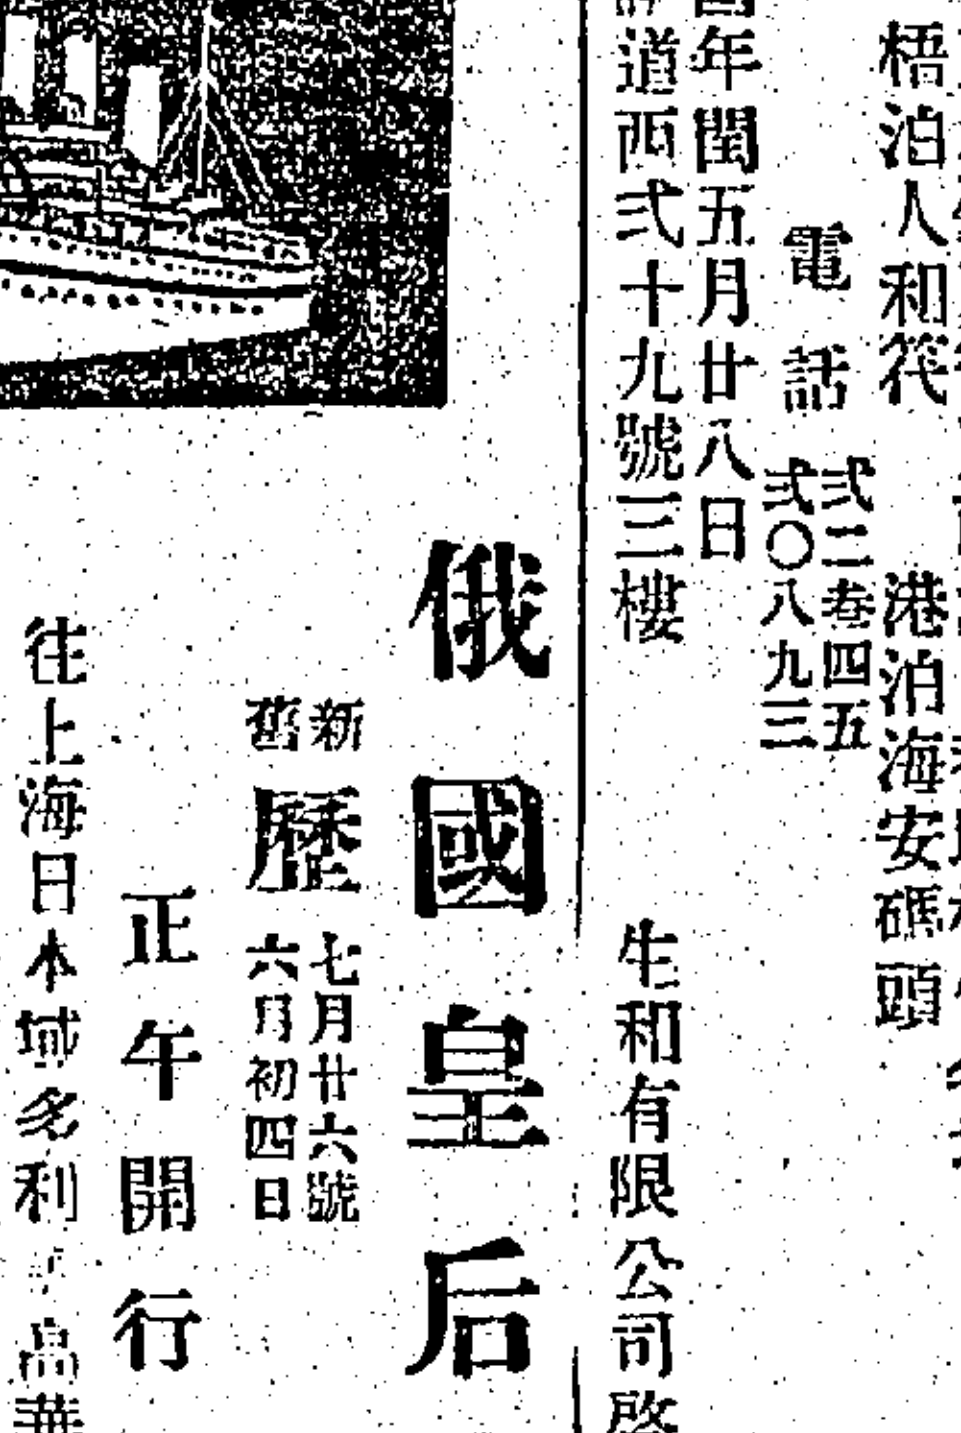 梧泊人和筏 港泊海安碼頭
電話
弍二卷四五
弍〇八九三
年閏五月廿八日
道西弍十九號三樓 生和有限公司啓
俄國皇后
新
舊
歷
七月廿六號
六月初四日
正午開行
往上海日本域多利